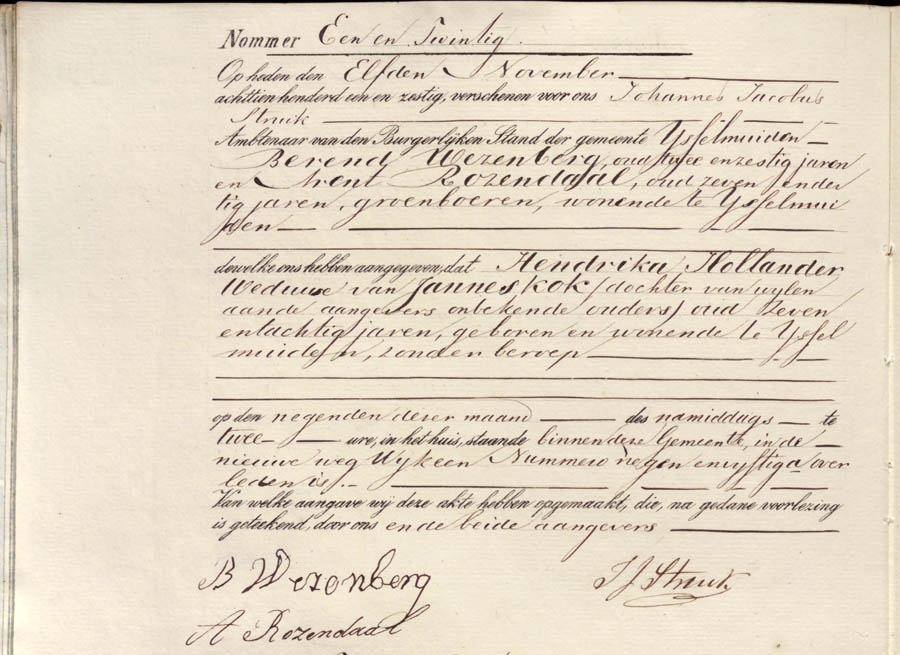 Nommer Een en Twintig.
Op heden den Elfden November
achttien honderd een en zestig, verschenen voor ons Johannes Jacobus
Struik
Ambtenaar van den Burgerlijken Stand der gemeente Ysselmuiden
Berend Wezenberg, oud twee en zestig jaren
en Arent Rozendaal, oud zeven en der
tig jaren, groenboeren, wonende te Ysselmui
den
dewelke ons hebben aangegeven, dat Hendrika Hollander
Weduwe van Jannes Kok (dochter van wijlen
aan de aangevers onbekende ouders) oud Zeven
en tachtig jaren, geboren en wonende te Yssel
muiden, zonder beroep
op den negenden dezer maand des namiddags te
twee ure, in het huis, staande binnen deze Gemeente, in de
nieuwe weg Wijk een Nummero negen en vijftig a over
leden is.
Van welke aangave wij deze akte hebben opgemaakt, die, na gedane voorlezing
is geteekend, door ons en de beide aangevers
B Wezenberg
J J Struik
A Rozendaal